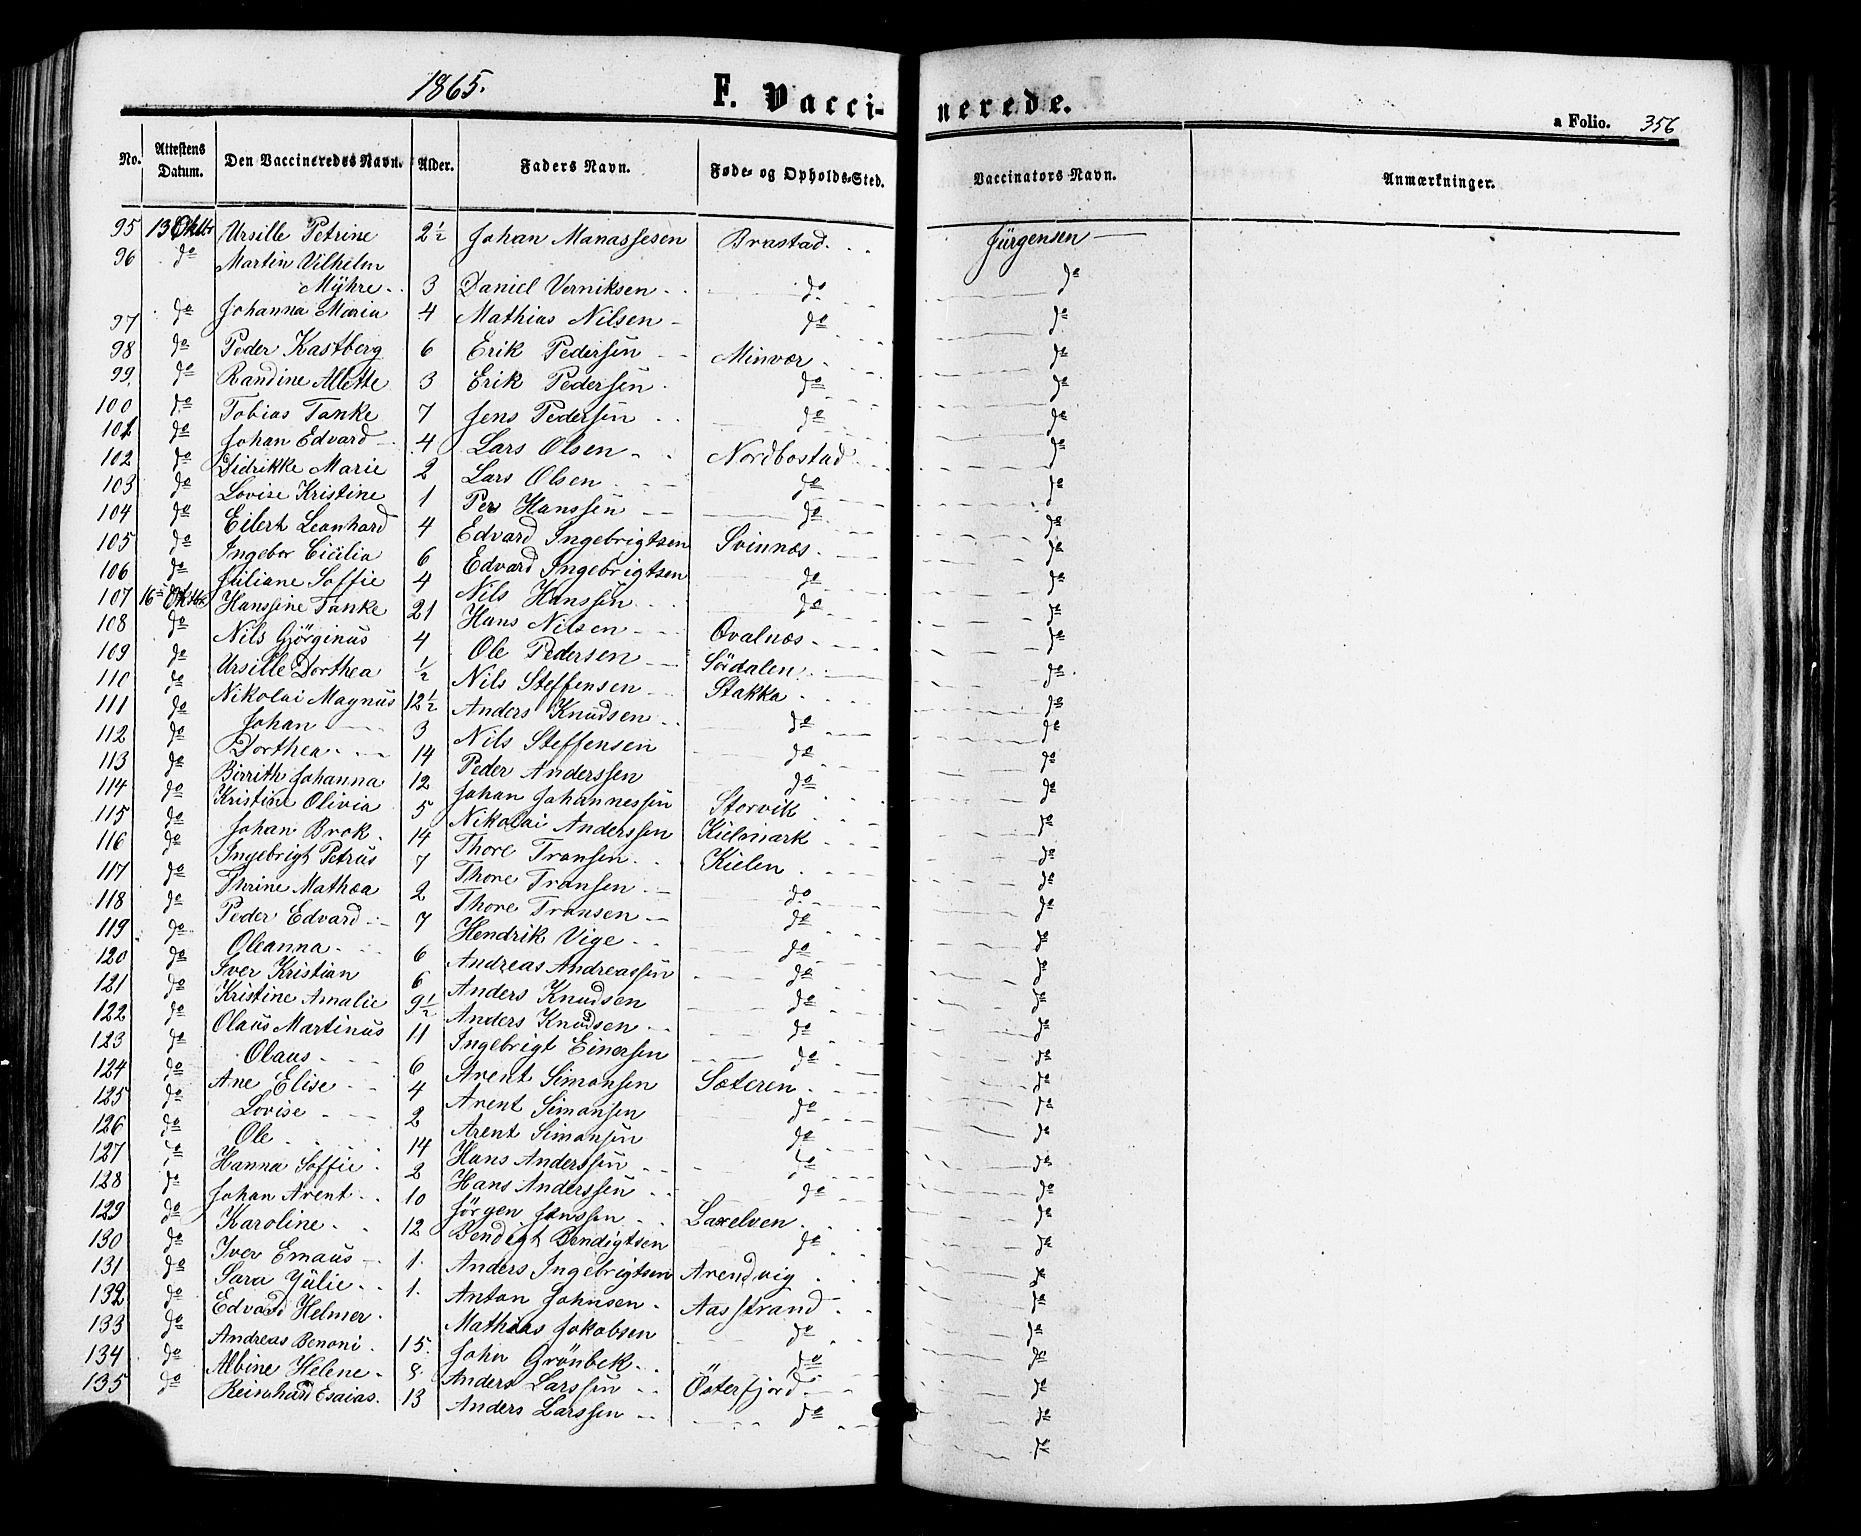 1865.
F. Vacci- nerede.
a Folio. 356
No. Attestens Datum. Den Vaccineredes Navn. Alder. Faders Navn. Føde- og Opholds-Sted. Vaccinators Navn. Anmærkninger.
95 13 Oktbr Ursille Petrine 2½ Johan Manassesen Brastad Jürgensen
96 do Martin Vilhelm
Myhre 3 Daniel Verniksen do do
97 do Johanna Maria 4 Mathias Nilsen do do
98 do Peder Kastberg 6 Erik Pedersen Minvær do
99 do Randine Alette 3 Erik Pedersen do do
100 do Tobias Tanke 7 Jens Pedersen do do
101 do Johan Edvard 4 Lars Olsen Nordbostad do
102 do Didrikke Marie 2 Lars Olsen do do
103 do Lovise Kristine 1 Per Hanssen do do
104 do Eilert Leonhard 4 Edvard Ingebrigtsen Svinnæs do
105 do Ingebor Cicilia 6 Edvard Ingebrigtsen do do
106 do Juliane Soffie 4 Nils Hanssen do do
107 16 Oktbr Hanssine Tanke 21 Hans Nilsen Qvalnæs do
108 do Nils Gjørginus 4 Ole Pedersen Sørdalen do
109 do Ursille Dorthea ½ Nils Steffensen Stakka do
110 do Nikolai Magnus 12½ Anders Knudsen do do
111 do Johan 3 Nils Steffensen do do
112 do Dorthea 14 Peder Anderssen do do
113 do Birrith Johanna 12 Johan Johannessen Storvik do
114 do Kristine Olivia 5 Nikolai Anderssen Kielmark do
115 do Johan Brok 14 Thore Transen Kielen do
116 do Ingebrigt Petrus 7 Thore Transen do do
117 do Thrine Mathea 2 Thore Transen do do
118 do Peder Edvard 7 Hendrik Vige do do
119 do Oleanna 6 Andreas Andreassen do do
120 do Iver Kristian 6 Anders Knudsen do do
121 do Kristine Amalie 9½ Anders Knudsen do do
122 do Olaus Martinus 11 Ingebrigt Einersen do do
123 do Olaus 6 Arent Simonsen Sæteren do
124 do Ane Elise 4 Arent Simonsen do do
125 do Lovise 2 Arent Simonsen do do
126 do Ole 14 Hans Anderssen do do
127 do Hanna Soffie 2 Hans Anderssen do do
128 do Johan Arent 10 Jørgen Jenssen Laxelven do
129 do Karoline 12 Bendigt Bendigtsen do do
130 do Iver Emaus 1 Anders Ingebrigtsen Arendvig do
131 do Sara Yülie 1 Anton Johnsen Aasstrand do
132 do Edvard Helmer Mathias Jakobsen do do
133 do Andreas Benoni 15 John Grönbek do do
134 do Albine Helene 8 Anders Larssen Österfjord do
135 do Reinhard Esaias 13 Anders Larssen do do
do